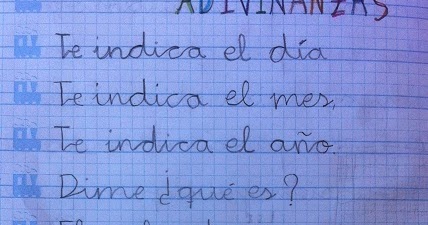 ADIVINANZAS
Te indica el día
Te indica el mes,
Te indica el año.
Dime ¿qué es?